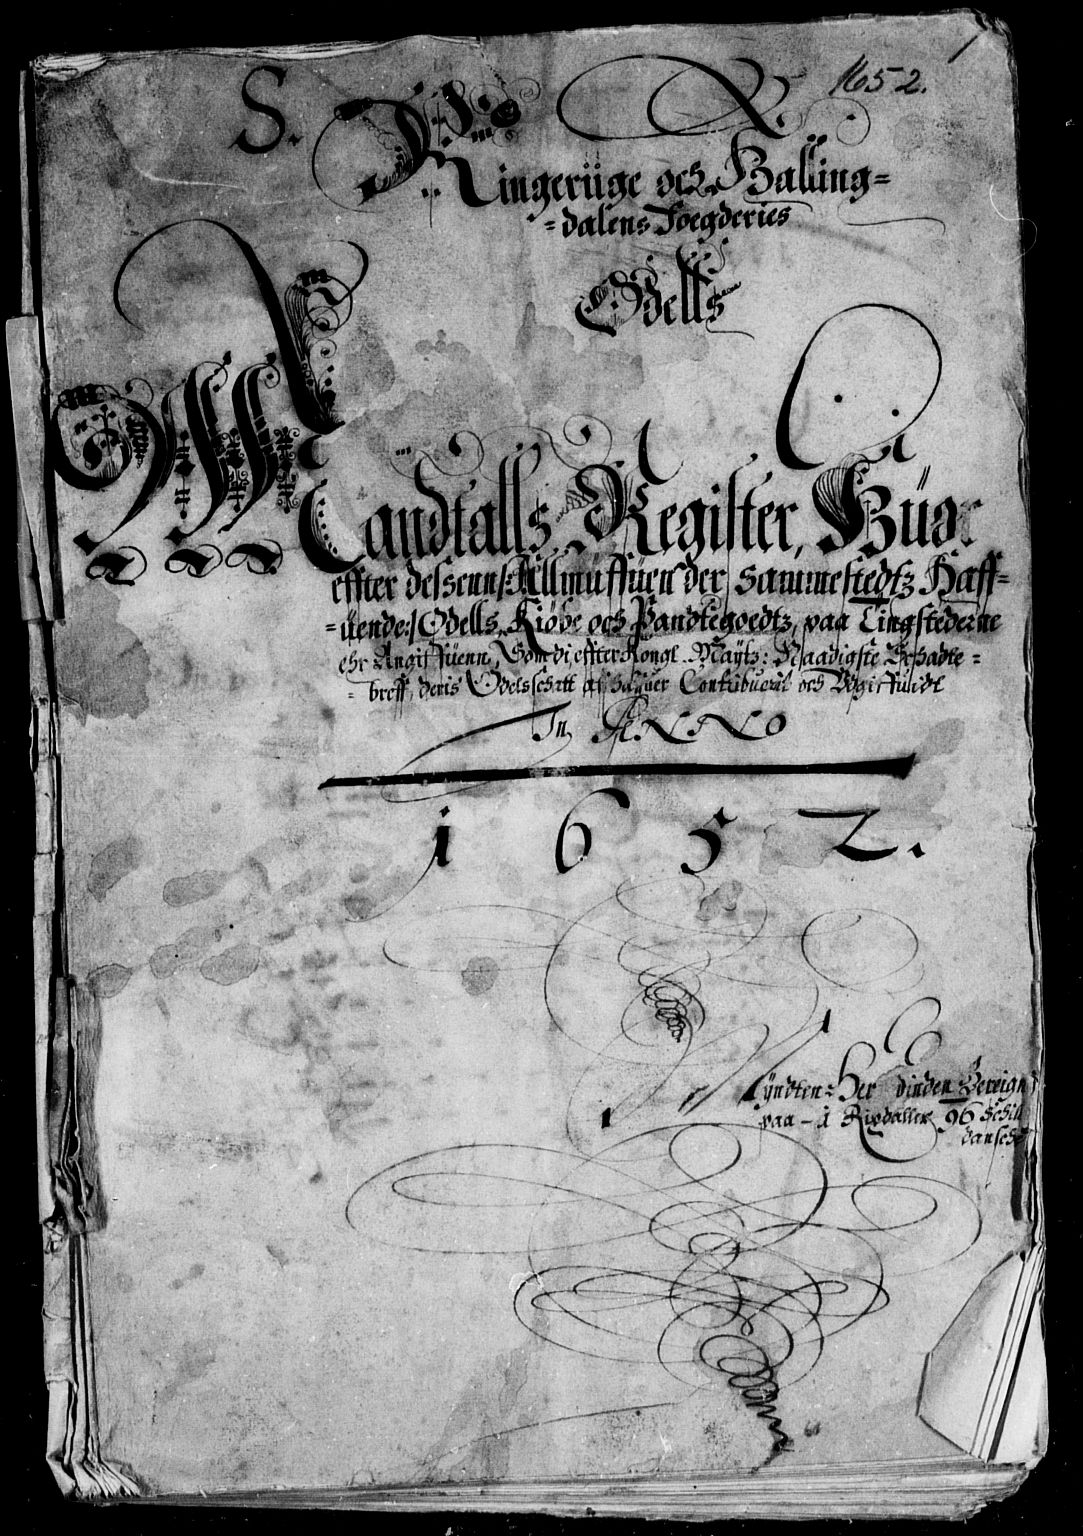 1652.
S.
Ringeriige och Halling=
=dalens Foegderies
Odells
Mandtalls Register, Huor
effter dessenn /: Allmuffuen der sammestedtz Haff=
=uende :/ Odells, Kiøbe och Pandtegoedtz, paa Tingstederne
ehr Angiffuenn, Som di effter Kongl. Maytz: Naadigste
breff, deris Odelsschatt aff Contribuerit och Udgiffuidt
In ANNO
1652.
paa - 1 Rixdaller 96 Schill
dansche